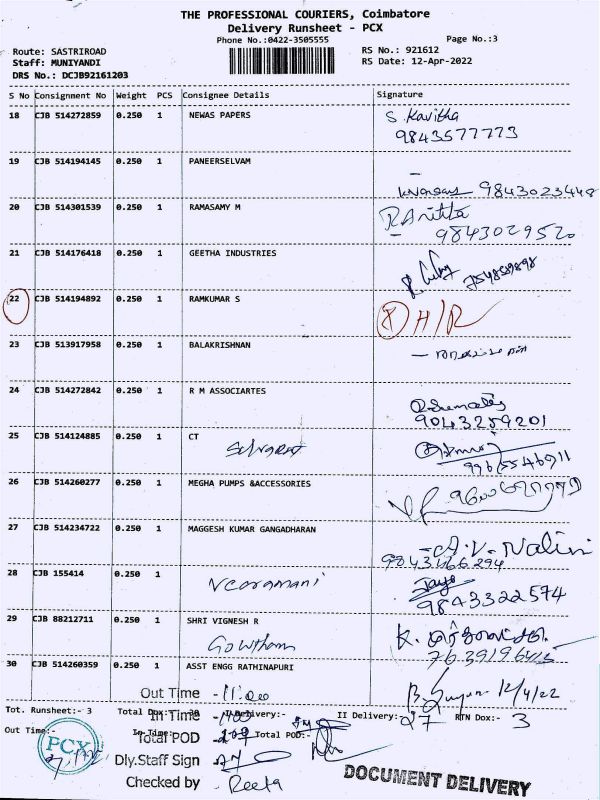 THE PROFESSIONAL COURIERS, Coimbatore
Delivery Runsheet - PCX
Phone No.:0422-3505555
Page No.:3
Route: SASTRIROAD
RS No.: 921612
Staff: MUNIYANDI
RS Date: 12-Apr-2022
DRS No.: DCJB92161203
S No Consignment No Weight PCS Consignee Details Signature
18 CJB 514272859 0.250 1 NEWAS PAPERS S. Kavitha
9843577773
19 CJB 514194145 0.250 1 PANEERSELVAM
9843023448
20 CJB 514301539 0.250 1 RAMASAMY M R Anitha
9843029520
21 CJB 514176418 0.250 1 GEETHA INDUSTRIES
22 CJB 514194892 0.250 1 RAMKUMAR S H/R
23 CJB 513917958 0.250 1 BALAKRISHNAN
24 CJB 514272842 0.250 1 R M ASSOCIARTES
9043259201
25 CJB 514124885 0.250 1 CT
26 CJB 514260277 0.250 1 MEGHA PUMPS &ACCESSORIES
27 CJB 514234722 0.250 1 MAGGESH KUMAR GANGADHARAN A.V. Nalini
9843466294
28 CJB 155414 0.250 1 Jaya
9843322574
29 CJB 88212711 0.250 1 SHRI VIGNESH R
Gowtham
30 CJB 514260359 0.250 1 ASST ENGG RATHINAPURI
12/4/22
Out Time
Tot. Runsheet:- 3
In Time
II Delivery:- 27 RTN Dox:- 3
Out Time:-
Total POD Total POD:-
PCX
Dly.Staff Sign
Checked by - Reeta
DOCUMENT DELIVERY